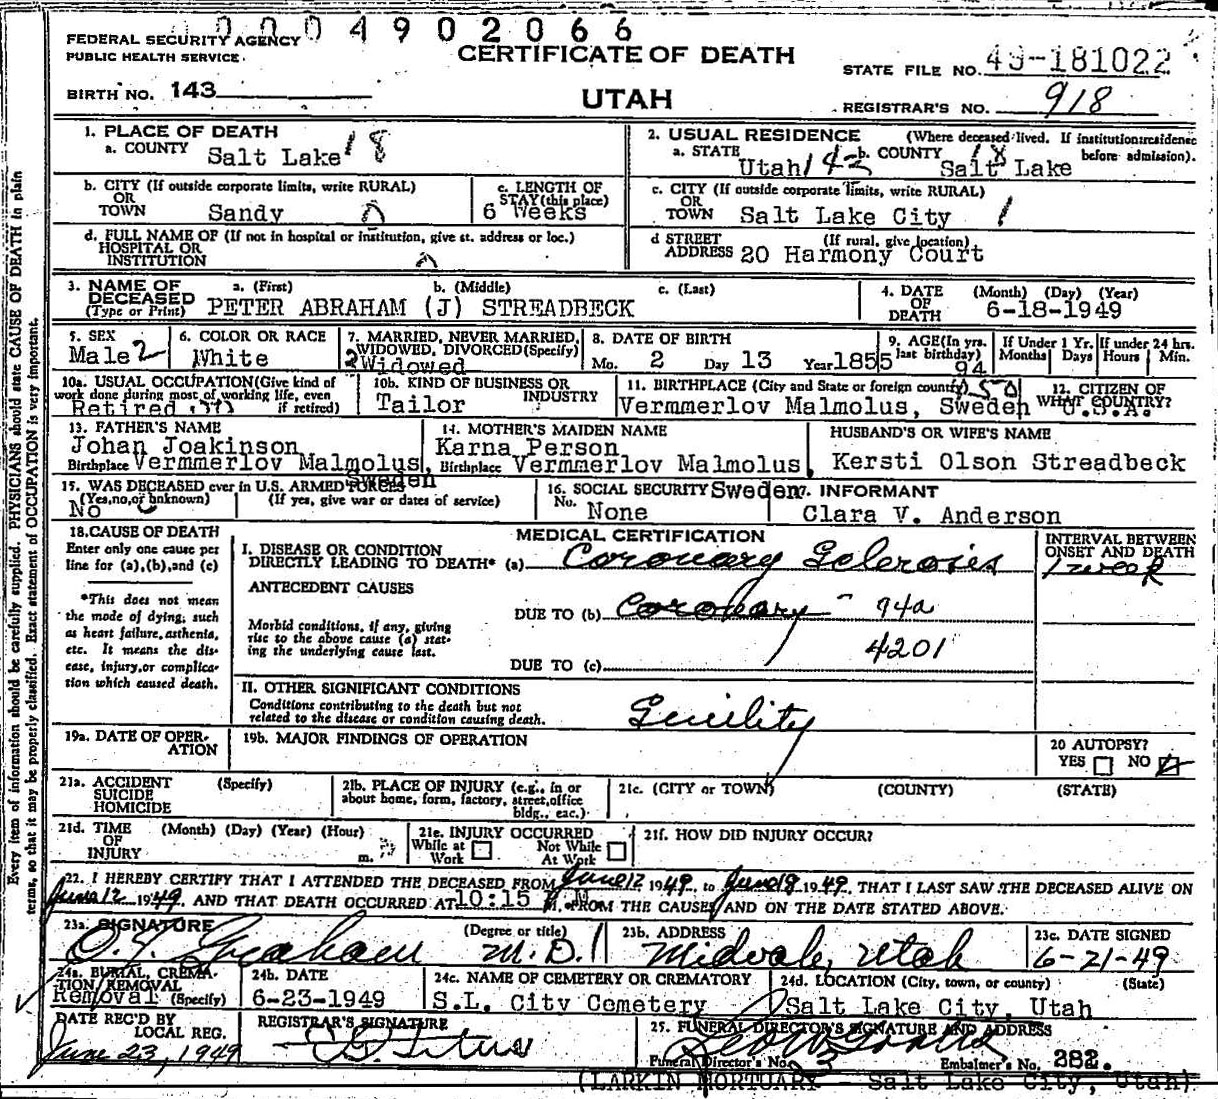 0004902066
FEDERAL SECURITY AGENCY
PUBLIC HEALTH SERVICE.
CERTIFICATE OF DEATH
STATE FILE NO. 49-181022
BIRTH NO. 143
UTAH
REGISTRAR'S NO. 918
1. PLACE OF DEATH
a. COUNTY Salt Lake 18
2. USUAL RESIDENCE (Where deceased lived. If institution:residence before admission).
a. STATE Utah 142 b. COUNTY 18 Salt Lake
b. CITY (If outside corporate limits, write RURAL)
OR
TOWN Sandy
c. LENGTH OF
STAY (this place)
6 Weeks
c. CITY (If outside corporate limits, write RURAL)
OR
TOWN Salt Lake City 1
d. FULL NAME OF (If not in hospital or institution, give st. address or loc.)
HOSPITAL OR
INSTITUTION
d STREET (If rural, give location)
ADDRESS 20 Harmony Court
3. NAME OF a. (First) b. (Middle) c. (Last)
DECEASED
(Type or Print) PETER ABRAHAM (J) STREADBECK
4. DATE (Month) (Day) (Year)
OF
DEATH 6-18-1949
5. SEX
Male 2
6. COLOR OR RACE
White
7. MARRIED, NEVER MARRIED,
WIDOWED, DIVORCED(Specify)
2 Widowed
8. DATE OF BIRTH
Mo. 2 Day 13 Year 1855
9. AGE(In yrs.
last birthday)
94
If Under 1 Yr.
Months Days
If under 24 hrs.
Hours Min.
10a. USUAL OCCUPATION(Give kind of
work done during most of working life, even
if retired)
Retired
10b. KIND OF BUSINESS OR
INDUSTRY
Tailor
11. BIRTHPLACE (City and State or foreign country)
Vermmerlov Malmolus, Sweden
12. CITIZEN OF
WHAT COUNTRY?
U.S.A.
13. FATHER'S NAME
Johan Joakinson
Birthplace Vermmerlov Malmolus,
Sweden
14. MOTHER'S MAIDEN NAME
Karna Person
Birthplace Vermmerlov Malmolus,
Sweden
HUSBAND'S OR WIFE'S NAME
Kersti Olson Streadbeck
15. WAS DECEASED ever in U.S. ARMED FORCES
(Yes,no,or unknown) (If yes, give war or dates of service)
No
16. SOCIAL SECURITY
No. None
17. INFORMANT
Clara V. Anderson
18. CAUSE OF DEATH
Enter only one cause per
line for (a),(b),and (c)
*This does not mean
the mode of dying; such
as heart failure, asthenia,
etc. It means the dis-
ease, injury, or complica-
tion which caused death.
MEDICAL CERTIFICATION
I. DISEASE OR CONDITION
DIRECTLY LEADING TO DEATH* (a) Coronary Sclerosis
INTERVAL BETWEEN
ONSET AND DEATH
1 week
ANTECEDENT CAUSES
DUE TO (b) Coronary - 94a
Morbid conditions, if any, giving
rise to the above cause (a) stat-
ing the underlying cause last.
4201
DUE TO (c)
II. OTHER SIGNIFICANT CONDITIONS
Conditions contributing to the death but not
related to the disease or condition causing death.
Senility
19a. DATE OF OPER-
ATION
19b. MAJOR FINDINGS OF OPERATION
20 AUTOPSY?
YES NO
21a. ACCIDENT (Specify)
SUICIDE
HOMICIDE
21b. PLACE OF INJURY (e.g., in or
about home, form, factory, street, office
bldg., eac.)
21c. (CITY or TOWN) (COUNTY) (STATE)
21d. TIME (Month) (Day) (Year) (Hour)
OF
INJURY m.
21e. INJURY OCCURRED
While at Work Not While At Work
21f. HOW DID INJURY OCCUR?
22. I HEREBY CERTIFY THAT I ATTENDED THE DECEASED FROM June 12 1949, to June 18 1949, THAT I LAST SAW THE DECEASED ALIVE ON
June 12 1949, AND THAT DEATH OCCURRED AT 10:15 M. FROM THE CAUSES AND ON THE DATE STATED ABOVE.
23a. SIGNATURE (Degree or title)
Graham M.D.
23b. ADDRESS
Midvale, Utah
23c. DATE SIGNED
6-21-49
24a. BURIAL, CREMA-
TION/REMOVAL
Removal (Specify)
24b. DATE
6-23-1949
24c. NAME OF CEMETERY OR CREMATORY
S.L. City Cemetery
24d. LOCATION (City, town, or county) (State)
Salt Lake City, Utah
DATE REC'D BY
LOCAL REG.
June 23, 1949
REGISTRAR'S SIGNATURE
25. FUNERAL DIRECTOR'S SIGNATURE AND ADDRESS
Funeral Director's No. Embalmer's No. 382.
(LARKIN MORTUARY - Salt Lake City, Utah)
Every item of information should be carefully supplied. PHYSICIANS should state CAUSE OF DEATH in plain
terms, so that it may be properly classified. Exact statement of OCCUPATION is very important.